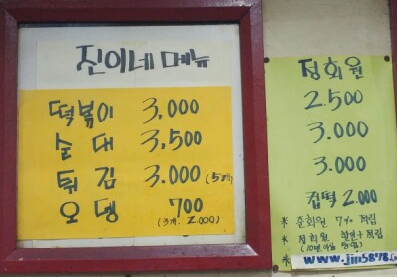 진이네 메뉴
떡볶이 3,000
순대 3,500
튀김 3,000 (5개)
오뎅 700
(3개. 2.000)
정회원
2.500
3.000
3.000
컵떡 2.000
* 준회원 7% 적립
* 정회원
www.jin5878.c